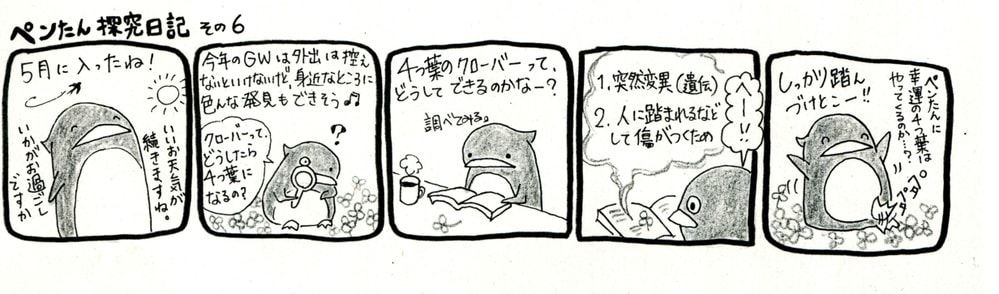 ペンたん探究日記 その6
5月に入ったね！
いいお天気が
続きますね。
いかがお過ごし
ですか
今年のGWは外出は控え
ないといけないけど、身近なところに
色んな発見もできそう♫
クローバーって、
どうしたら
4つ葉に
なるの？
？
4つ葉のクローバーって、
どうしてできるのかなー？
調べてみる。
1. 突然変異（遺伝）
2. 人に踏まれるなど
して傷がつくため
へー！！
しっかり踏ん
づけとこー！！
ペンたんに
幸運の4つ葉は
やってくるのか…？
パタパタ